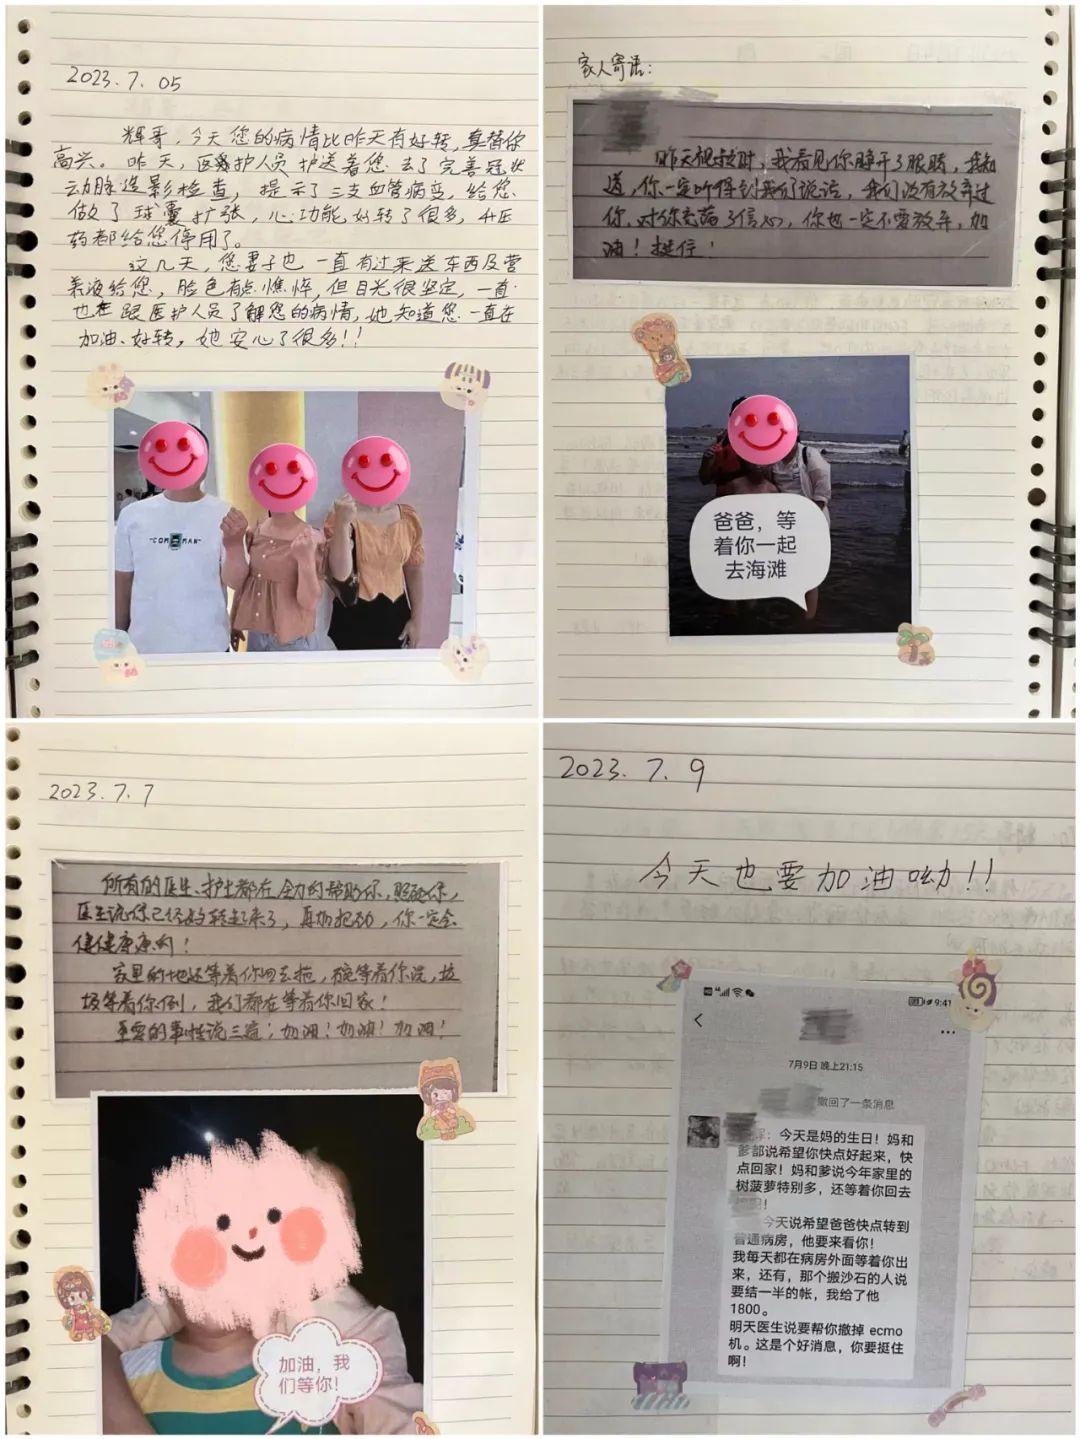 2023.7.05
辉哥，今天您的病情比昨天有好转，真替你
高兴。昨天，医护人员护送着您去了完善冠状
动脉造影检查，提示了三支血管病变，给您
做了球囊扩张，心功能好转了很多，升压
药都给您停用了。
这几天，您妻子也一直有过来送东西及营
养液给您，脸色有点憔悴，但目光很坚定，一直
也在跟医护人员了解您的病情，她知道您一直在
加油、好转，她安心了很多!!
-COM MAN-
家人寄语：
昨天视频时，我看见你睁开了眼睛，我知
道，你一定听得到我们说话，我们没有放弃过
你，对你充满了信心，你也一定不要放弃，加
油！挺住！
爸爸，等
着你一起
去海滩
2023.7.7
所有的医生、护士都在全力的帮助你，照顾你，
医生说你已经好转起来了，再加把劲，你一定会
健健康康的！
家里的地还等着你回去拖，碗等着你洗，垃
圾等着你倒，我们都在等着你回家！
重要的事情说三遍：加油！加油！加油！
加油，我
们等你！
2023.7.9
今天也要加油呦!!
9:41
7月9日 晚上21:15
撤回了一条消息
：今天是妈的生日！妈和
爹都说希望你快点好起来，快
点回家！妈和爹说今年家里的
树菠萝特别多，还等着你回去
！
今天说希望爸爸快点转到
普通病房，他要来看你！
我每天都在病房外面等着你出
来，还有，那个搬沙石的人说
要结一半的帐，我给了他
1800。
明天医生说要帮你撤掉 ecmo
机。这是个好消息，你要挺住
啊！